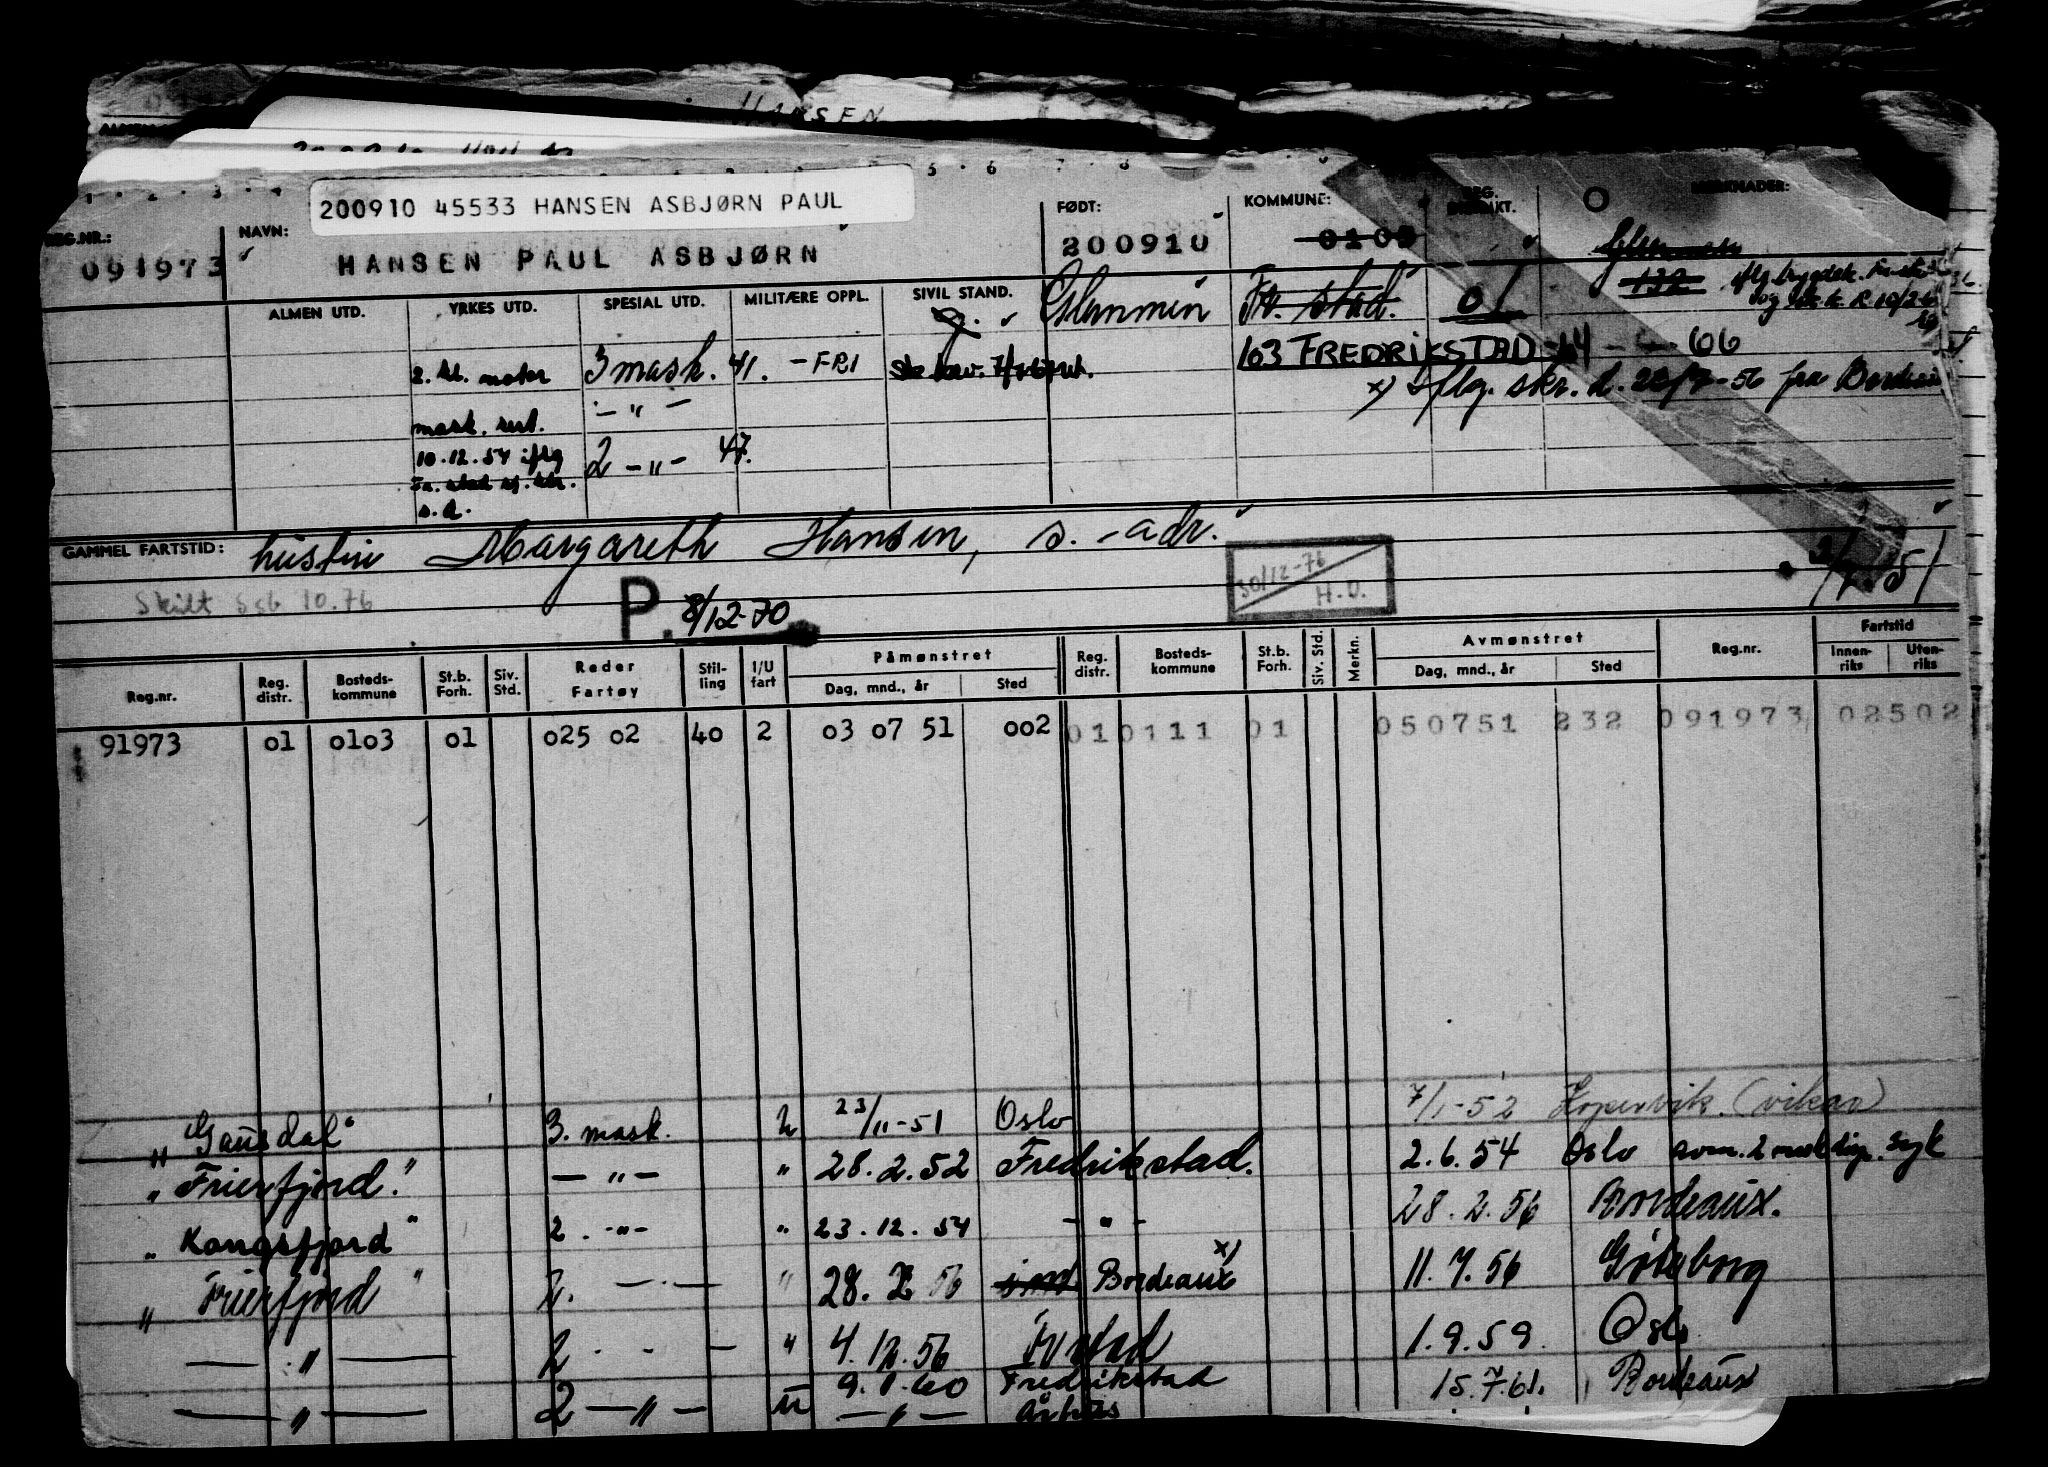 HANSEN
200910 45533 HANSEN ASBJØRN PAUL
REG.NR.: NAVN: FØDT: KOMMUNE: REG. DISTRIKT. MERKNADER:
091973 HANSEN PAUL ASBJØRN 200910 0103
ALMEN UTD. YRKES UTD. SPESIAL UTD. MILITÆRE OPPL. SIVIL STAND. Glemmen Fr. stad. 01
2. kl. motor 3 mask. 41. - FRI g. 103 FREDRIKSTAD 14 - - 66
x) Iflg. skr. d. 28/7-56 fra Bordeaux
mask. sert. - " -
10.12.54 iflg 2 - " - 47.
Fr. stad sj. ktr.
s. d.
GAMMEL FARTSTID: hustru Margareth Hansen, s. - adr.
Skilt 10.76 P. 8/12-70 30/12-76 H.O. 2/7.51
Reg.nr. Reg. distr. Bosteds-kommune St.b. Forh. Siv. Std. Reder Fartøy Stil-ling I/U fart Påmønstret Dag, mnd., år Sted Reg. distr. Bosteds-kommune St.b. Forh. Siv. Std. Merkn. Avmønstret Dag, mnd., år Sted Reg.nr. Fartstid Innen-riks Uten-riks
91973 01 0103 01 025 02 40 2 03 07 51 002 01 0111 01 050751 232 091973 02502
" "Gausdal" 3. mask. 2 23/11-51 Oslo 7/1-52 Kopervik. (vikar)
" Frierfjord." - " - " 28.2.52 Fredrikstad. 2.6.54 Oslo syk
" Kongsfjord " 2. - " - " 23.12.54 - " - 28.2.56 Bordeaux.
" Frierfjord " 2. - - " 28. 2 56 Bordeaux x) 11.7.56 Göteborg
- " - 2 - - - " 4.12.56 Fr stad 1.9.59. Oslo
- " - 2 - " - u 9.1.60 Fredrikstad 15.7.61. Bordeaux
- " - Århus